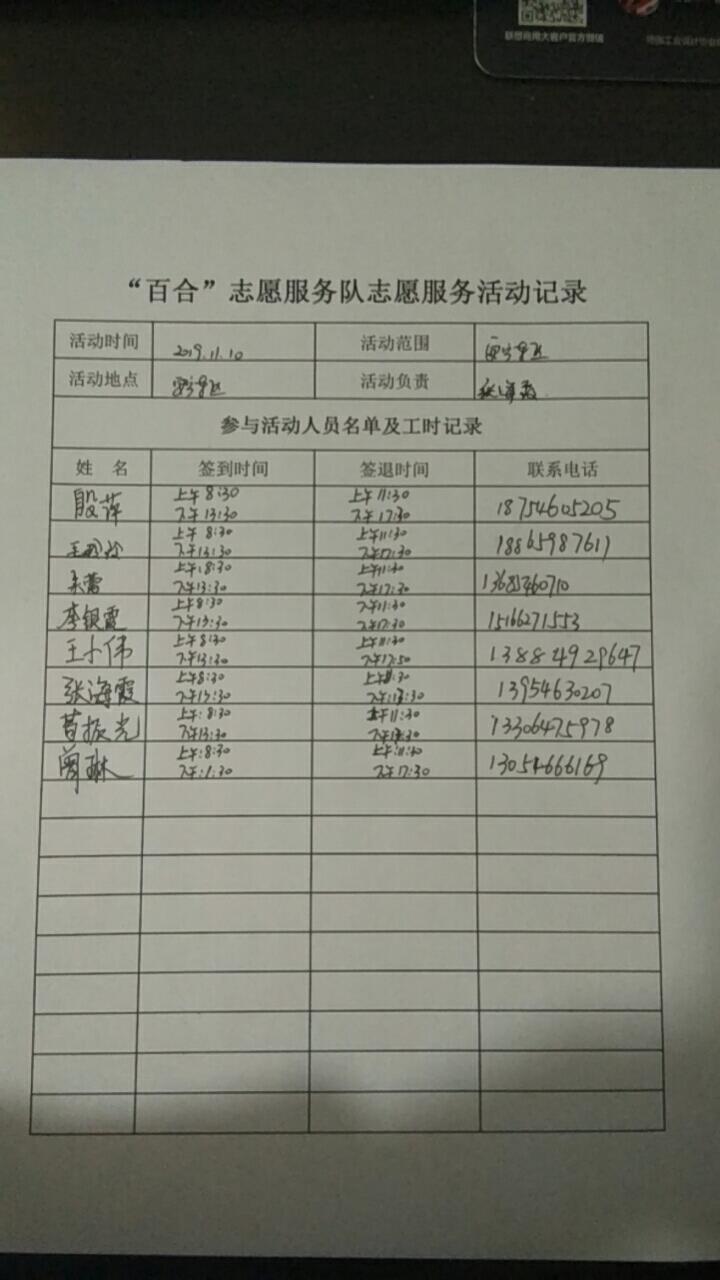 联想商用大客户官方微信
“百合”志愿服务队志愿服务活动记录
活动时间 2019.11.10 活动范围
活动地点 活动负责
参与活动人员名单及工时记录
姓 名 签到时间 签退时间 联系电话
殷萍 上午8:30 上午11:30 18754605205
下午13:30 下午17:30
上午8:30 上午11:30 18865987611
下午13:30 下午17:30
上午8:30 上午11:30 13685460710
下午13:30 下午17:30
李银霞 上午8:30 上午11:30 15166271553
下午13:30 下午17:30
王小伟 上午8:30 上午11:30 13884929647
下午13:30 下午17:30
张海霞 上午8:30 上午11:30 13954630207
下午13:30
苗振光 上午:8:30 上午11:30 13306475978
下午13:30
曾琳 上午:8:30 上午:11:30 13054666169
下午:1:30 下午17:30